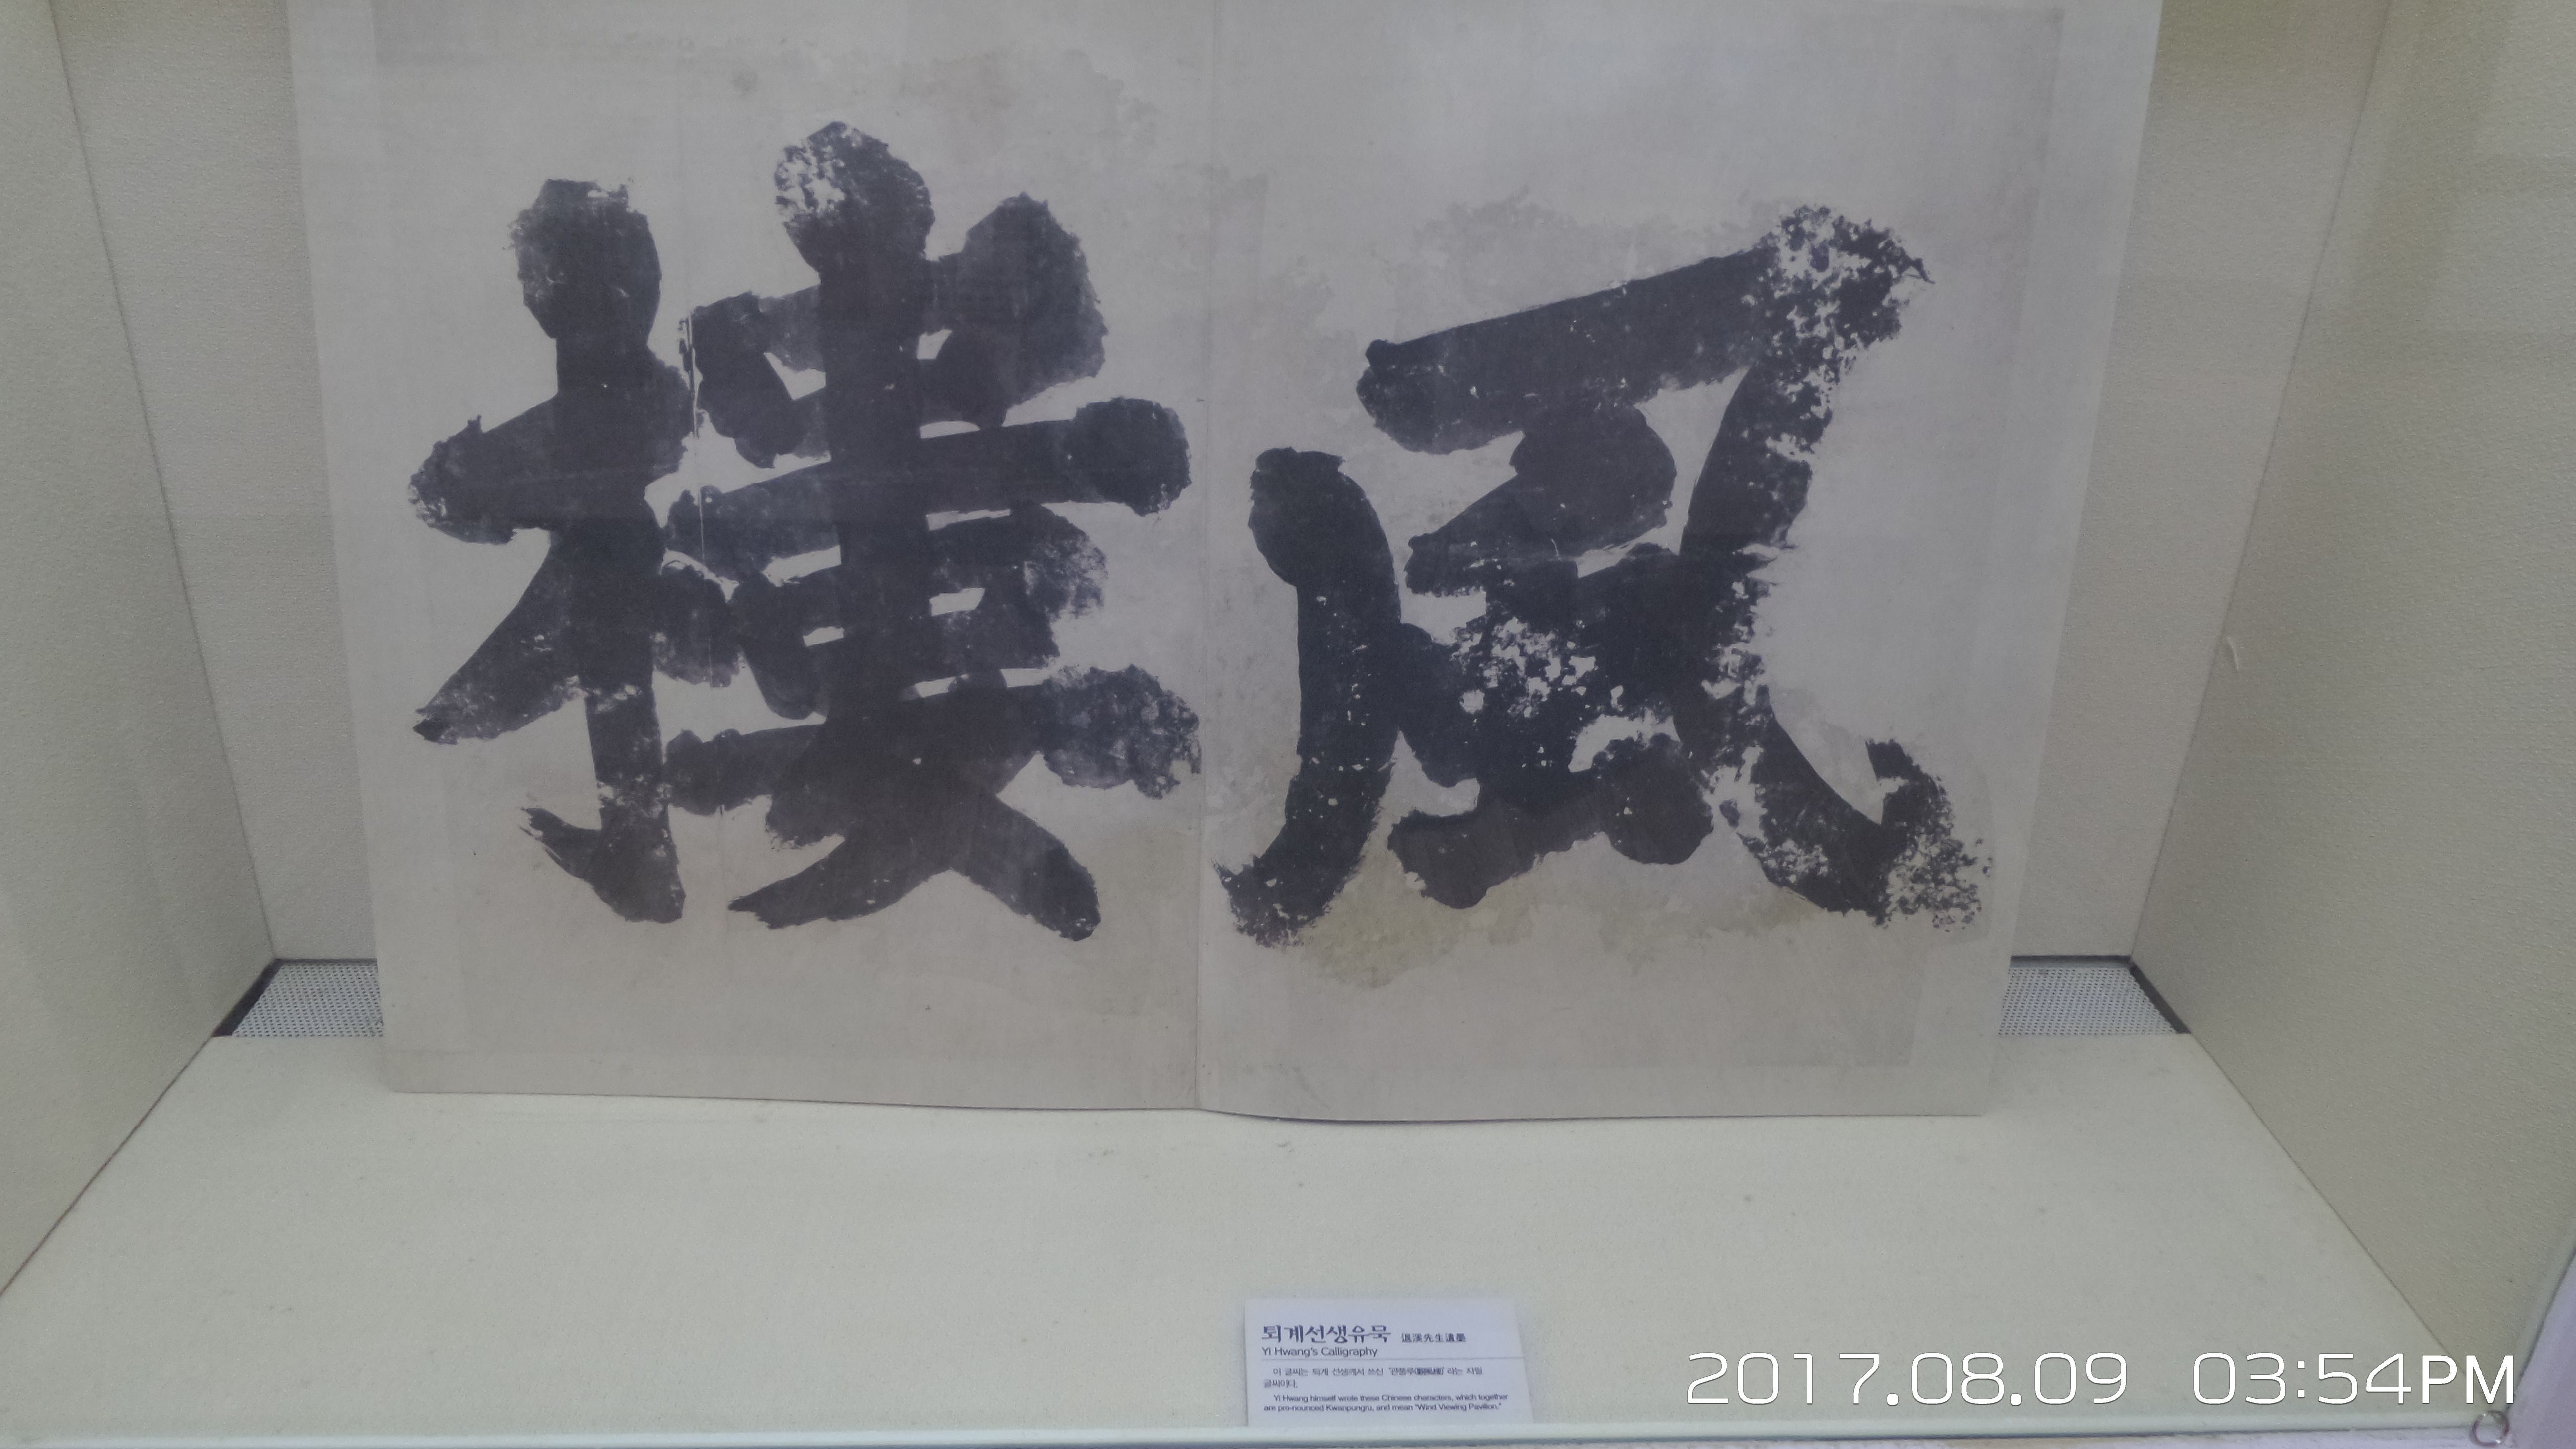 風樓
퇴계선생유묵 退溪先生遺墨
Yi Hwang's Calligraphy
이 글씨는 퇴계 선생께서 쓰신 '관풍루(觀風樓)' 라는 자필
글씨이다.
Yi Hwang himself wrote these Chinese characters, which together
are pro-nounced Kwanpungru, and mean "Wind Viewing Pavilion."
2017.08.09 03:54PM